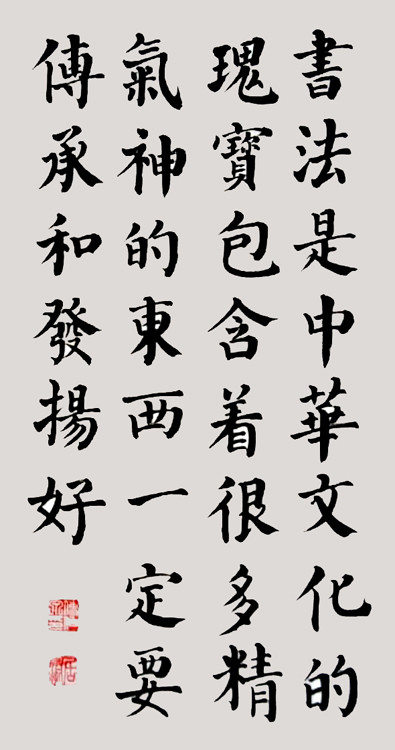 書法是中華文化的
瑰寶包含着很多精
氣神的東西一定要
傳承和發揚好